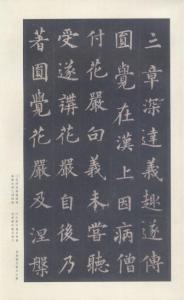 三章深達義趣遂傳
圓覺在漢上因病僧
付花嚴句義未嘗聽
受遂講花嚴自後乃
著圓覺花嚴及涅槃